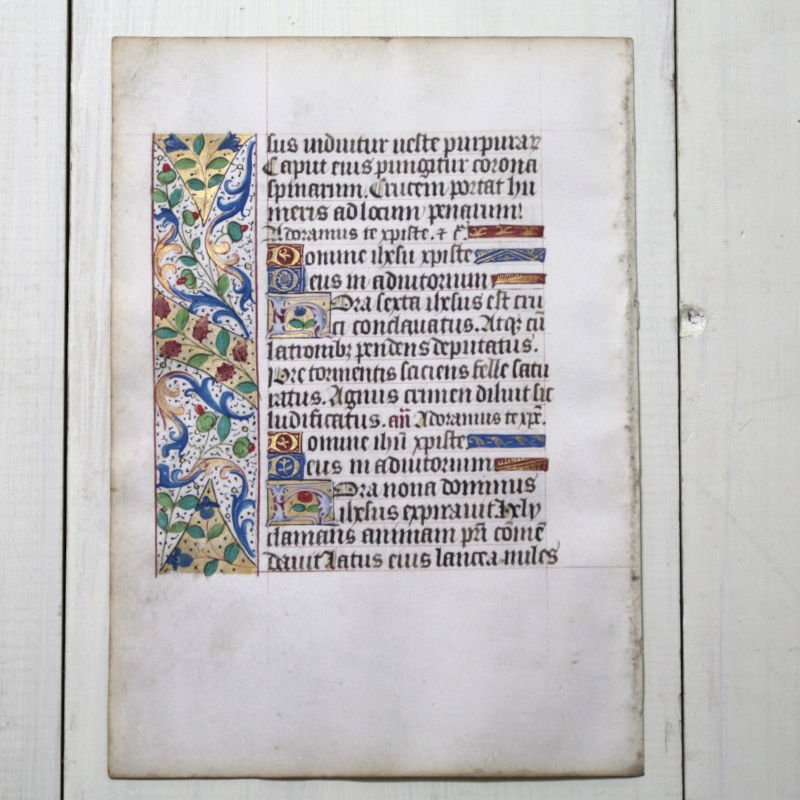 sus induitur ueste purpurar
Caput eius pungitur corona
spinarum. Crucem portat hu
meris ad locum penarum!
Adoramus te xpiste. &
Domine ihesu xpiste
Deus in adiutorium
Hora sexta ihesus est cru
ci conclauatus. Atq; cū
latronibꝫ pendens deputatus.
Pre tormentis sciciens felle satu
ratus. Agnus crimen diluit sic
ludificatus. añ Adoramus te xpē.
Domine ihū xpiste
Deus in adiutorium
Hora nona dominus
ihesus expirauit hely
clamans animam pri cōmē
dauit latus eius lancea miles